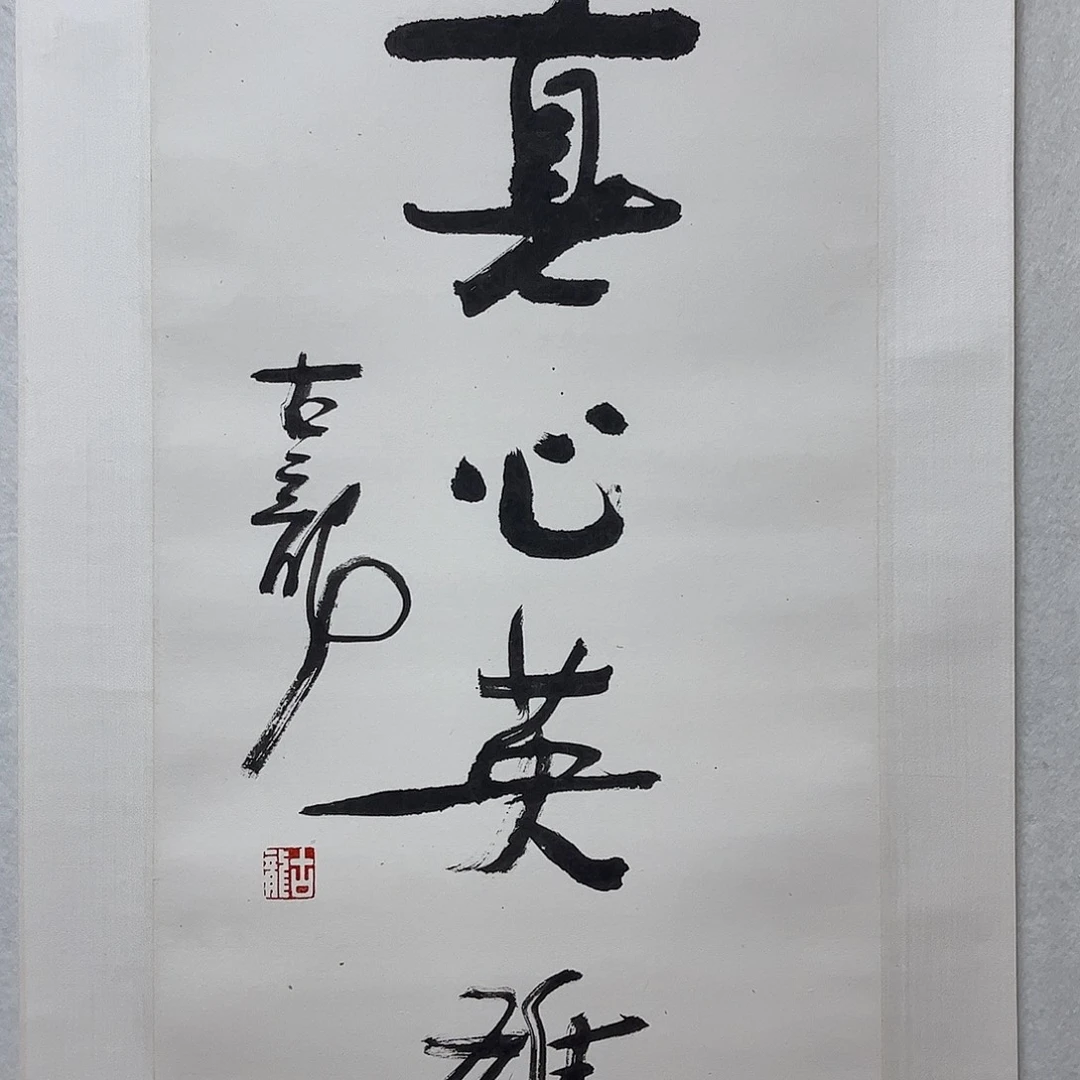 真心英雄
古龍
古龍